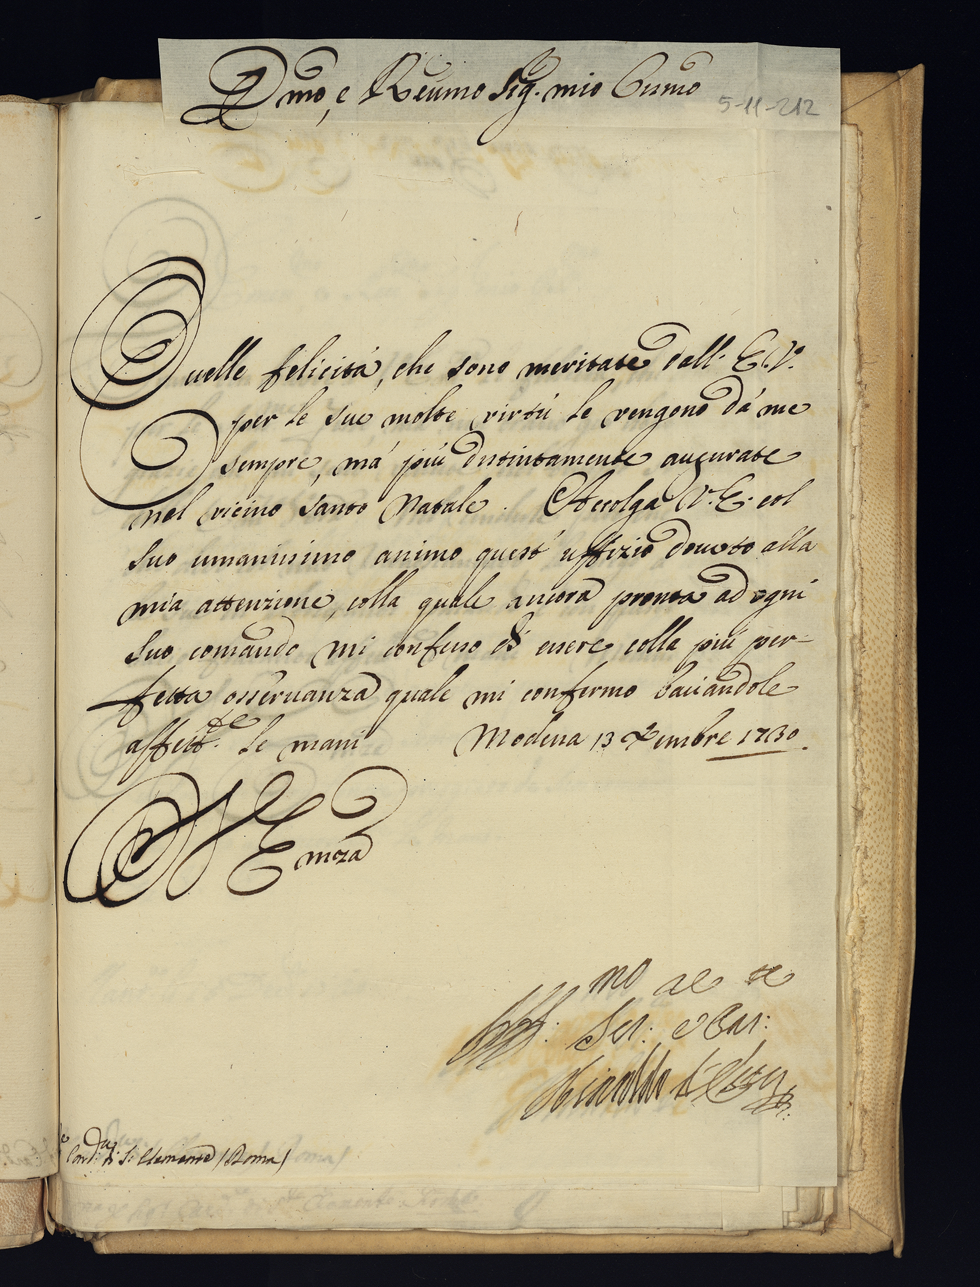 Emo, e Reumo Sig. mio Ossmo
5-11-212
Quelle felicità, che sono meritate dall' E.V.
per le sue molte virtù le vengono dà me
sempre, mà più distintamente augurate
nel vicino santo Natale. Accolga V.E. col
suo umanissimo animo quest' uffizio douuto alla
mia attenzione, colla quale ancora pronta ad ogni
suo comando mi confesso di essere colla più per-
fetta osseruanza quale mi confermo baciandole
affett.e le mani Modena 13 Xembre 1730.
V Emza
Aff.mo
Ser:
Rinaldo d'Este
Card. di S. Clemente (Roma)